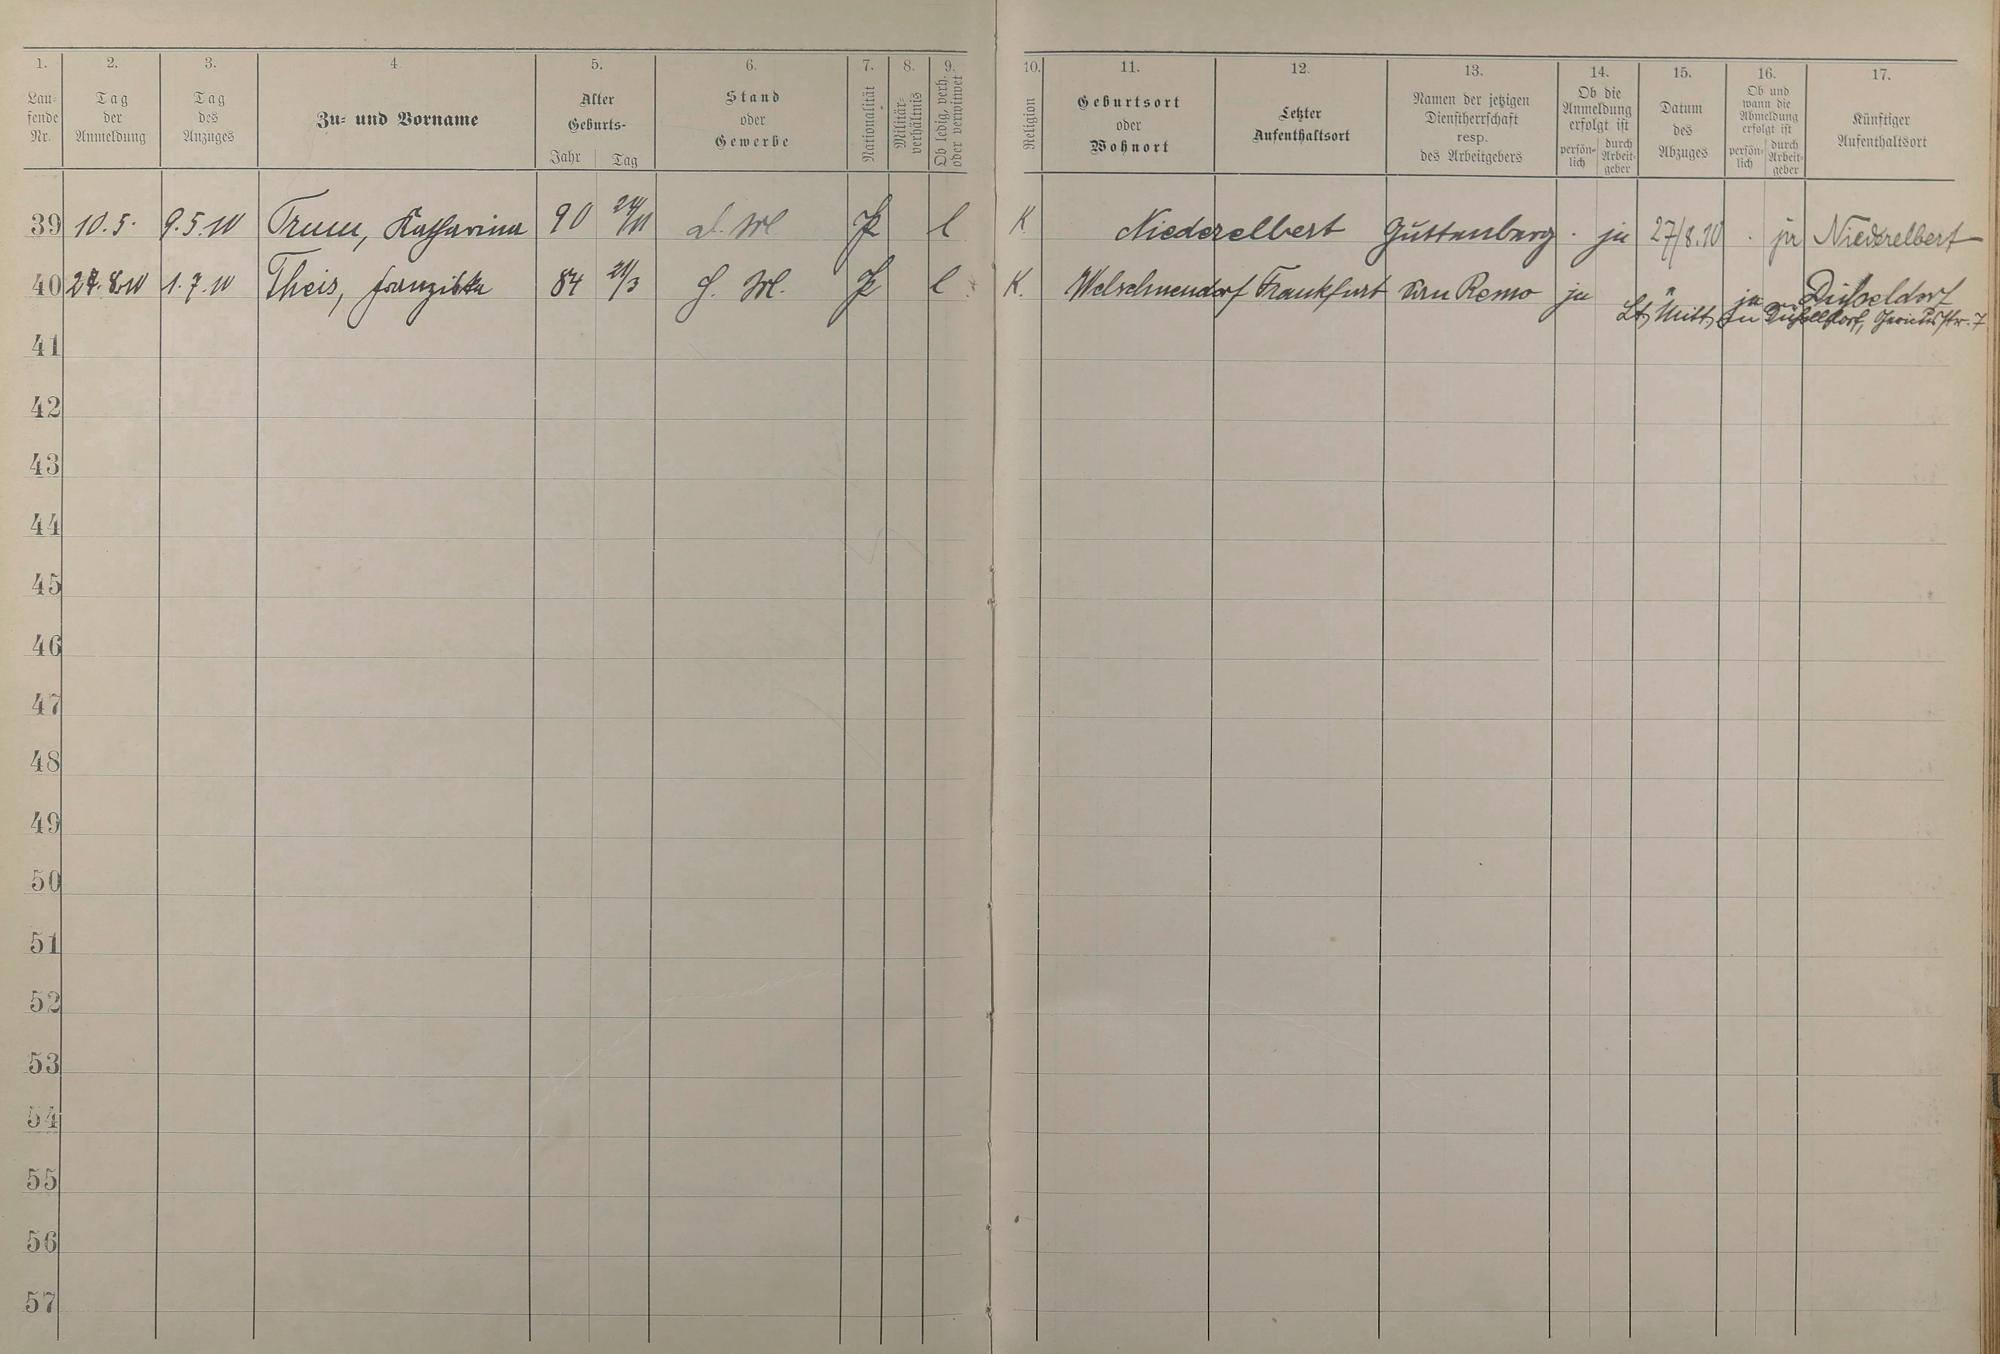 1. 2. 3. 4. 5. 6. 7. 8. 9. 10. 11. 12. 13. 14. 15. 16. 17.
Lau-
fende
Nr.
Tag
der
Anmeldung
Tag
des
Anzuges
Zu- und Vorname
Alter
Geburts-
Jahr Tag
Stand
oder
Gewerbe
Nationalität
Militär-
verhältnis
Ob ledig, verh.
oder verwitwet
Religion
Geburtsort
oder
Wohnort
Letzter
Aufenthaltsort
Namen der jetzigen
Dienstherrschaft
resp.
des Arbeitgebers
Ob die
Anmeldung
erfolgt ist
persön-
lich
durch
Arbeit-
geber
Datum
des
Abzuges
Ob und
wann die
Abmeldung
erfolgt ist
persön-
lich
durch
Arbeit-
geber
Künftiger
Aufenthaltsort
39 10.5. 9.5.10 Katharina 90 24/11 P l K Niederelbert Guttenberg . ja 27/8.10 . ja Niederelbert
40 1.7.10 Theis, Franziska 84 21/3 P l K. Welschneudorf Frankfurt San Remo ja ja Düsseldorf
Lt. Mitt. in Düsseldorf, 7
41
42
43
44
45
46
47
48
49
50
51
52
53
54
55
56
57